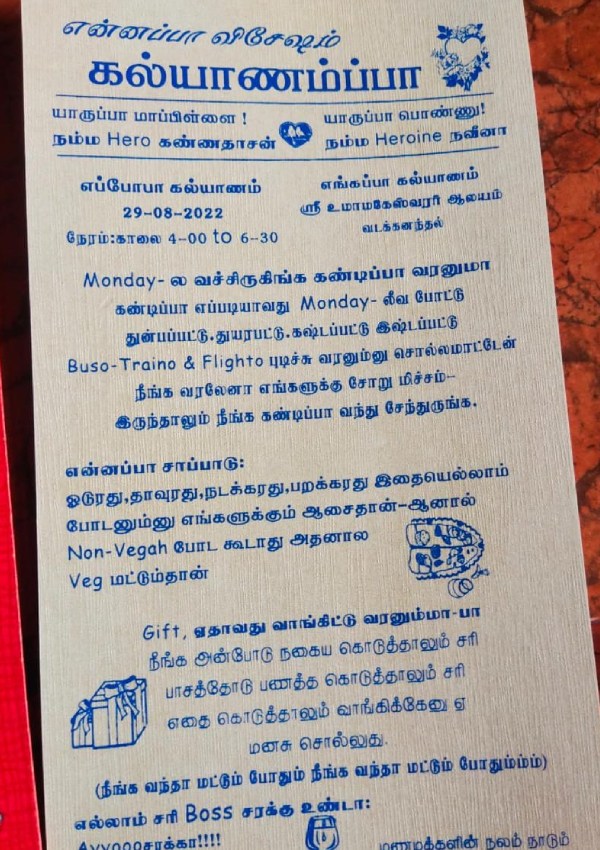 என்னப்பா விசேஷம்
கல்யாணம்ப்பா
யாருப்பா மாப்பிள்ளை !
நம்ம Hero கண்ணதாசன்
யாருப்பா பொண்ணு!
நம்ம Heroine நவீனா
எப்போபா கல்யாணம்
29-08-2022
நேரம்:காலை 4-00 to 6-30
எங்கப்பா கல்யாணம்
ஸ்ரீ உமாமகேஸ்வரர் ஆலயம்
வடக்கனந்தல்
Monday- ல வச்சிருகிங்க கண்டிப்பா வரனுமா
கண்டிப்பா எப்படியாவது Monday- லீவ போட்டு
துன்பப்பட்டு.துயரபட்டு.கஷ்டப்பட்டு இஷ்டப்பட்டு
Buso-Traino & Flighto புடிச்சு வரனும்னு சொல்லமாட்டேன்
நீங்க வரலேனா எங்களுக்கு சோறு மிச்சம்-
இருந்தாலும் நீங்க கண்டிப்பா வந்து சேந்துருங்க.
என்னப்பா சாப்பாடு:
ஓடுரது,தாவுரது,நடக்கரது,பறக்கரது இதையெல்லாம்
போடனும்னு எங்களுக்கும் ஆசைதான்-ஆனால்
Non-Vegah போட கூடாது அதனால
Veg மட்டும்தான்
Gift, ஏதாவது வாங்கிட்டு வரனும்மா-பா
நீங்க அன்போடு நகைய கொடுத்தாலும் சரி
பாசத்தோடு பணத்த கொடுத்தாலும் சரி
எதை கொடுத்தாலும் வாங்கிக்கேனு ஏ
மனசு சொல்லுது.
(நீங்க வந்தா மட்டும் போதும் நீங்க வந்தா மட்டும் போதும்ம்ம்)
எல்லாம் சரி Boss சரக்கு உண்டா:
Ayyoooசரக்கா!!!!
மணமக்களின் நலம் நாடும்